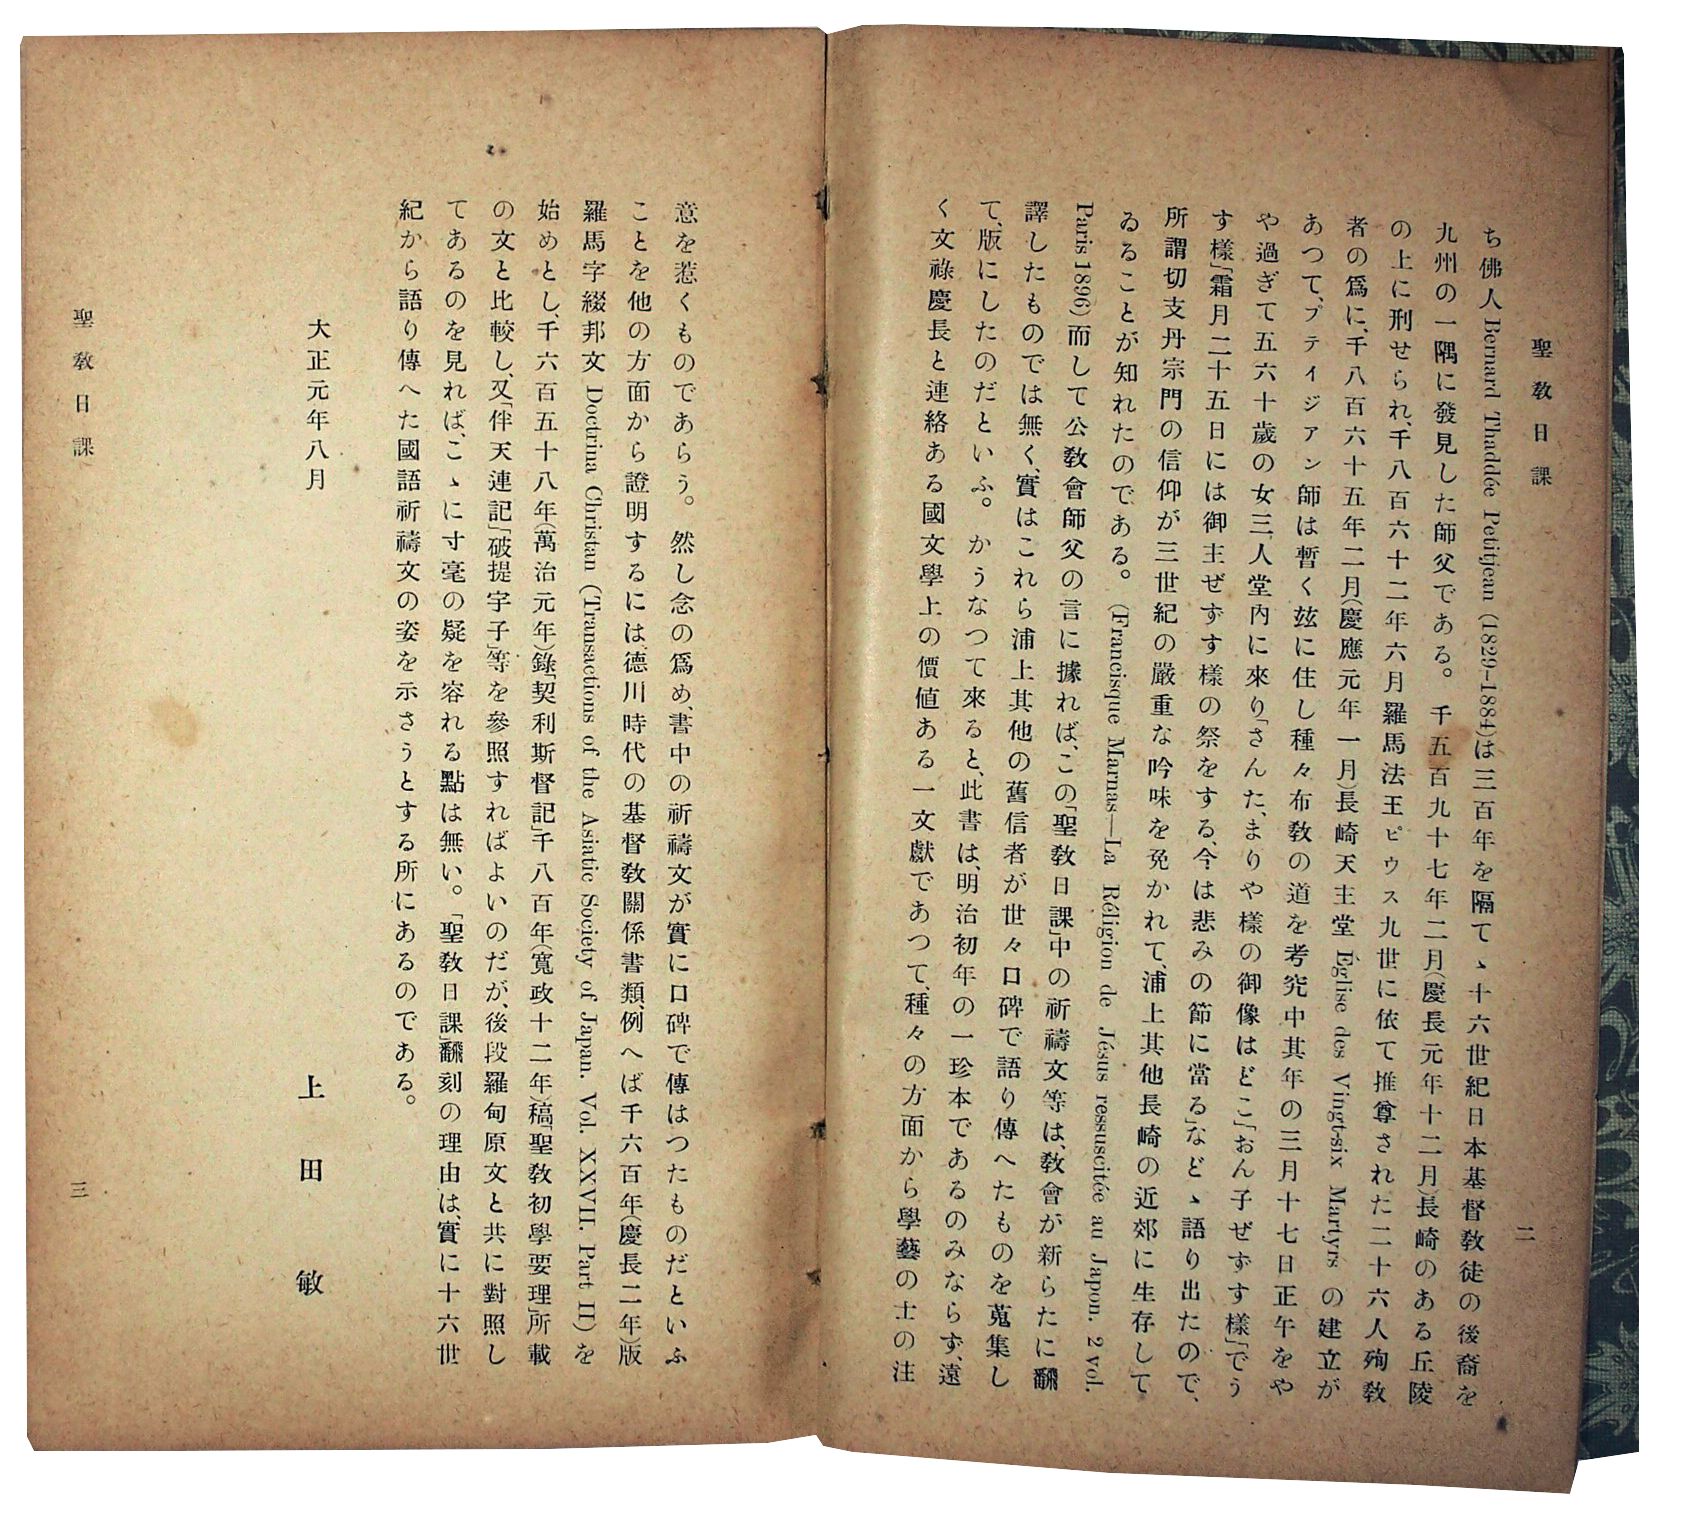 聖敎日課
二
ち佛人 Bernard Thaddée Petitjean (1829–1884)は三百年を隔てヽ十六世紀日本基督敎徒の後裔を
九州の一隅に發見した師父である。千五百九十七年二月(慶長元年十二月)長崎のある丘陵
の上に刑せられ、千八百六十二年六月羅馬法王ピウス九世に依て推尊された二十六人殉敎
者の爲に、千八百六十五年二月(慶應元年一月)長崎天主堂 Église des Vingt-six Martyrs の建立が
あつて、プティジアン師は暫く玆に住し種々布敎の道を考究中其年の三月十七日正午をや
や過ぎて五六十歲の女三人堂內に來り「さんた、まりや樣の御像はどこ」「おん子ぜずす樣」「でう
す樣」「霜月二十五日には御主ぜずす樣の祭をする、今は悲みの節に當る」などヽ語り出たので、
所謂切支丹宗門の信仰が三世紀の嚴重な吟味を免かれて、浦上其他長崎の近郊に生存して
ゐることが知れたのである。(Francisque Marnas—La Réligion de Jésus ressuscitée au Japon. 2 vol.
Paris 1896) 而して公敎會師父の言に據れば、この「聖敎日課」中の祈禱文等は、敎會が新らたに飜
譯したものでは無く、實はこれら浦上其他の舊信者が世々口碑で語り傳へたものを蒐集し
て、版にしたのだといふ。かうなつて來ると、此書は、明治初年の一珍本であるのみならず、遠
く文祿慶長と連絡ある國文學上の價値ある一文獻であつて、種々の方面から學藝の士の注
意を惹くものであらう。然し念の爲め、書中の祈禱文が實に口碑で傳はつたものだといふ
ことを他の方面から證明するには、德川時代の基督敎關係書類、例へば千六百年(慶長二年)版
羅馬字綴邦文 Doctrina Christan (Transactions of the Asiatic Society of Japan. Vol. XXVII. Part II) を
始めとし、千六百五十八年(萬治元年)錄「契利斯督記」千八百年(寬政十二年)稿「聖敎初學要理」所載
の文と比較し、又「伴天連記」「破提宇子」等を參照すればよいのだが、後段羅甸原文と共に對照し
てあるのを見れば、こヽに寸毫の疑を容れる點は無い。「聖敎日課」飜刻の理由は、實に十六世
紀から語り傳へた國語祈禱文の姿を示さうとする所にあるのである。
大正元年八月
上田敏
聖敎日課
三